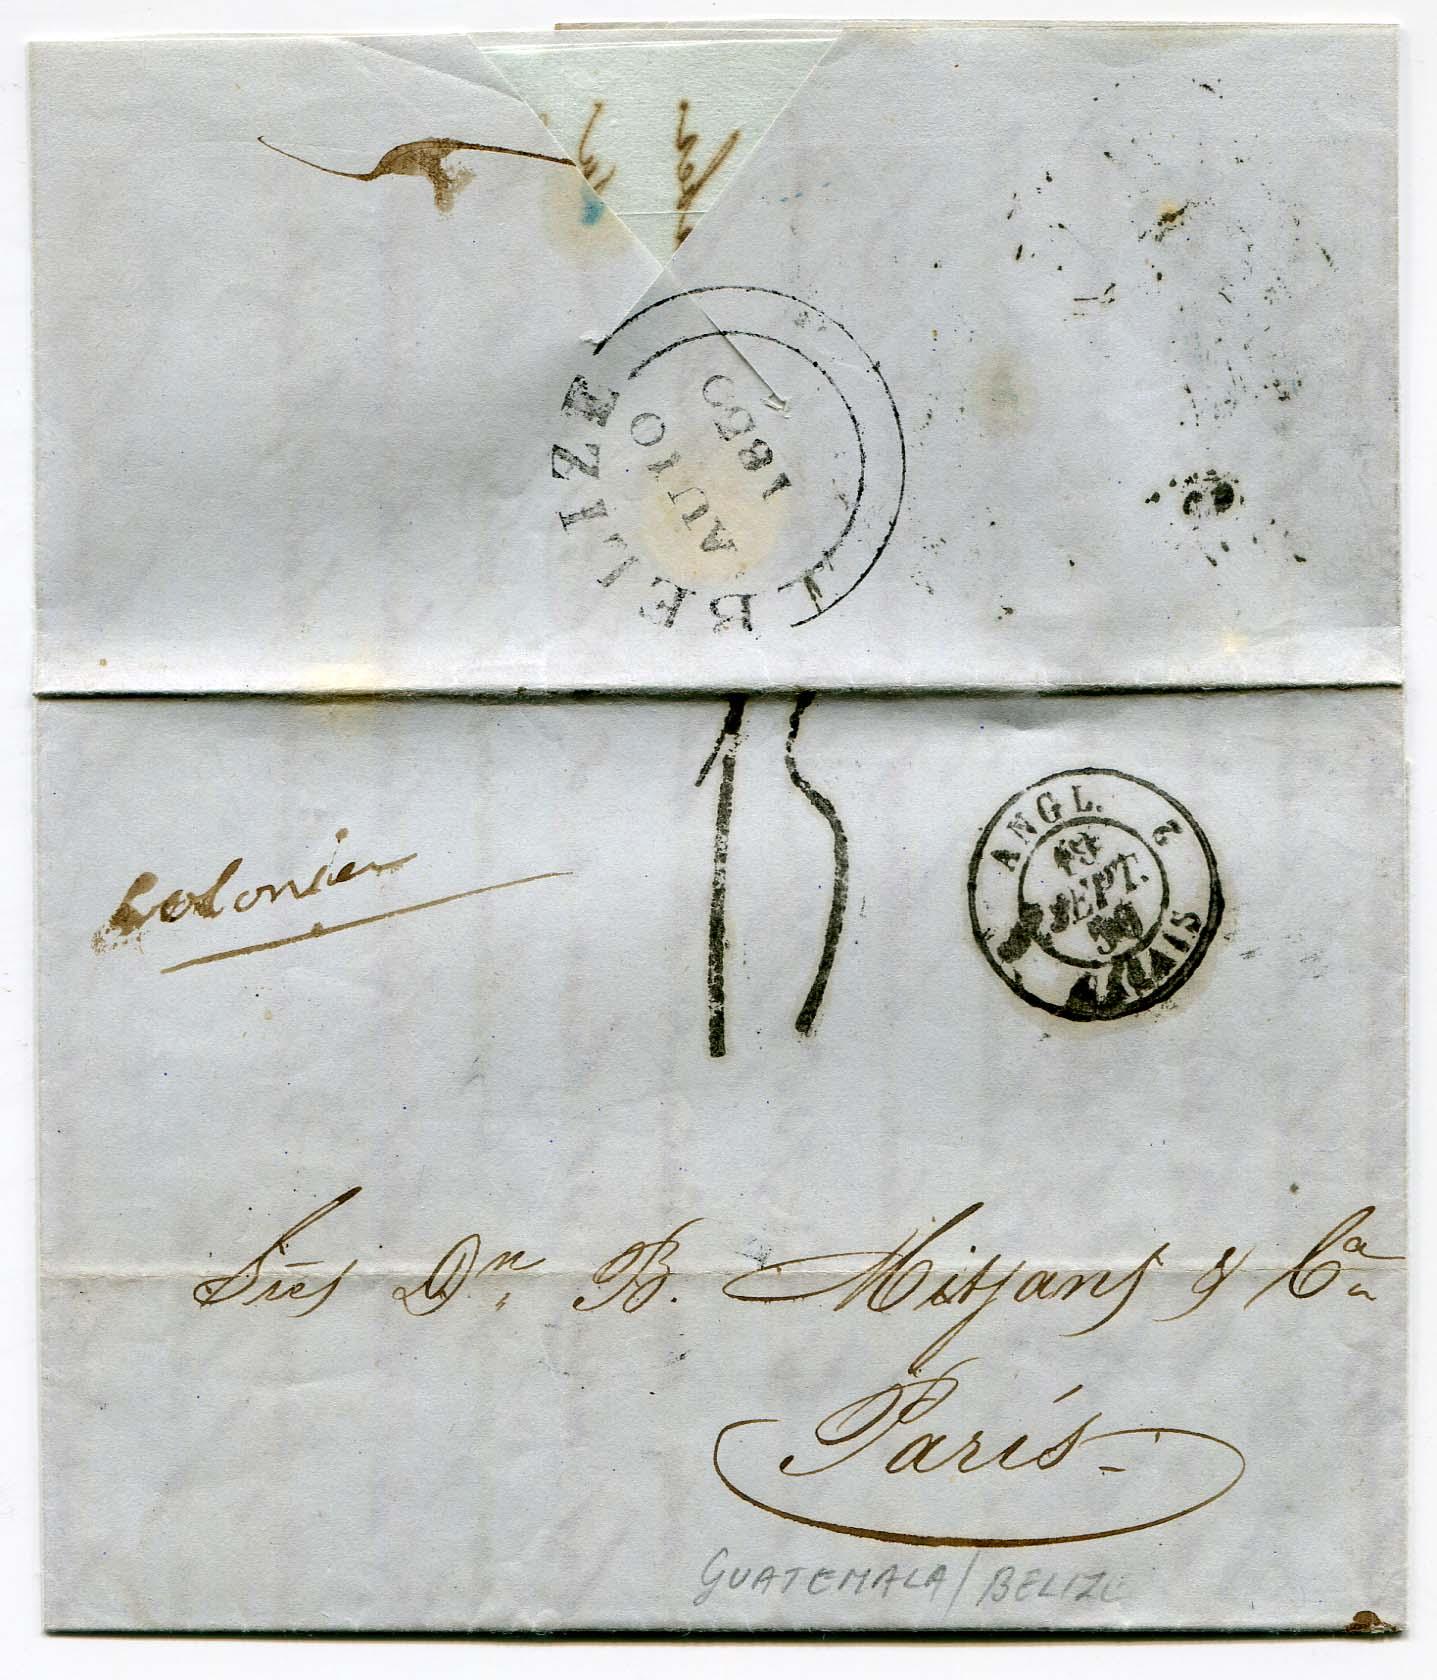 BELIZE
AU 10
1850
15
ANGL. 2 CALAIS
19
SEPT.
50
Colonies
Sres Dn B. Mitjans & Ca
París
GUATEMALA/BELIZE